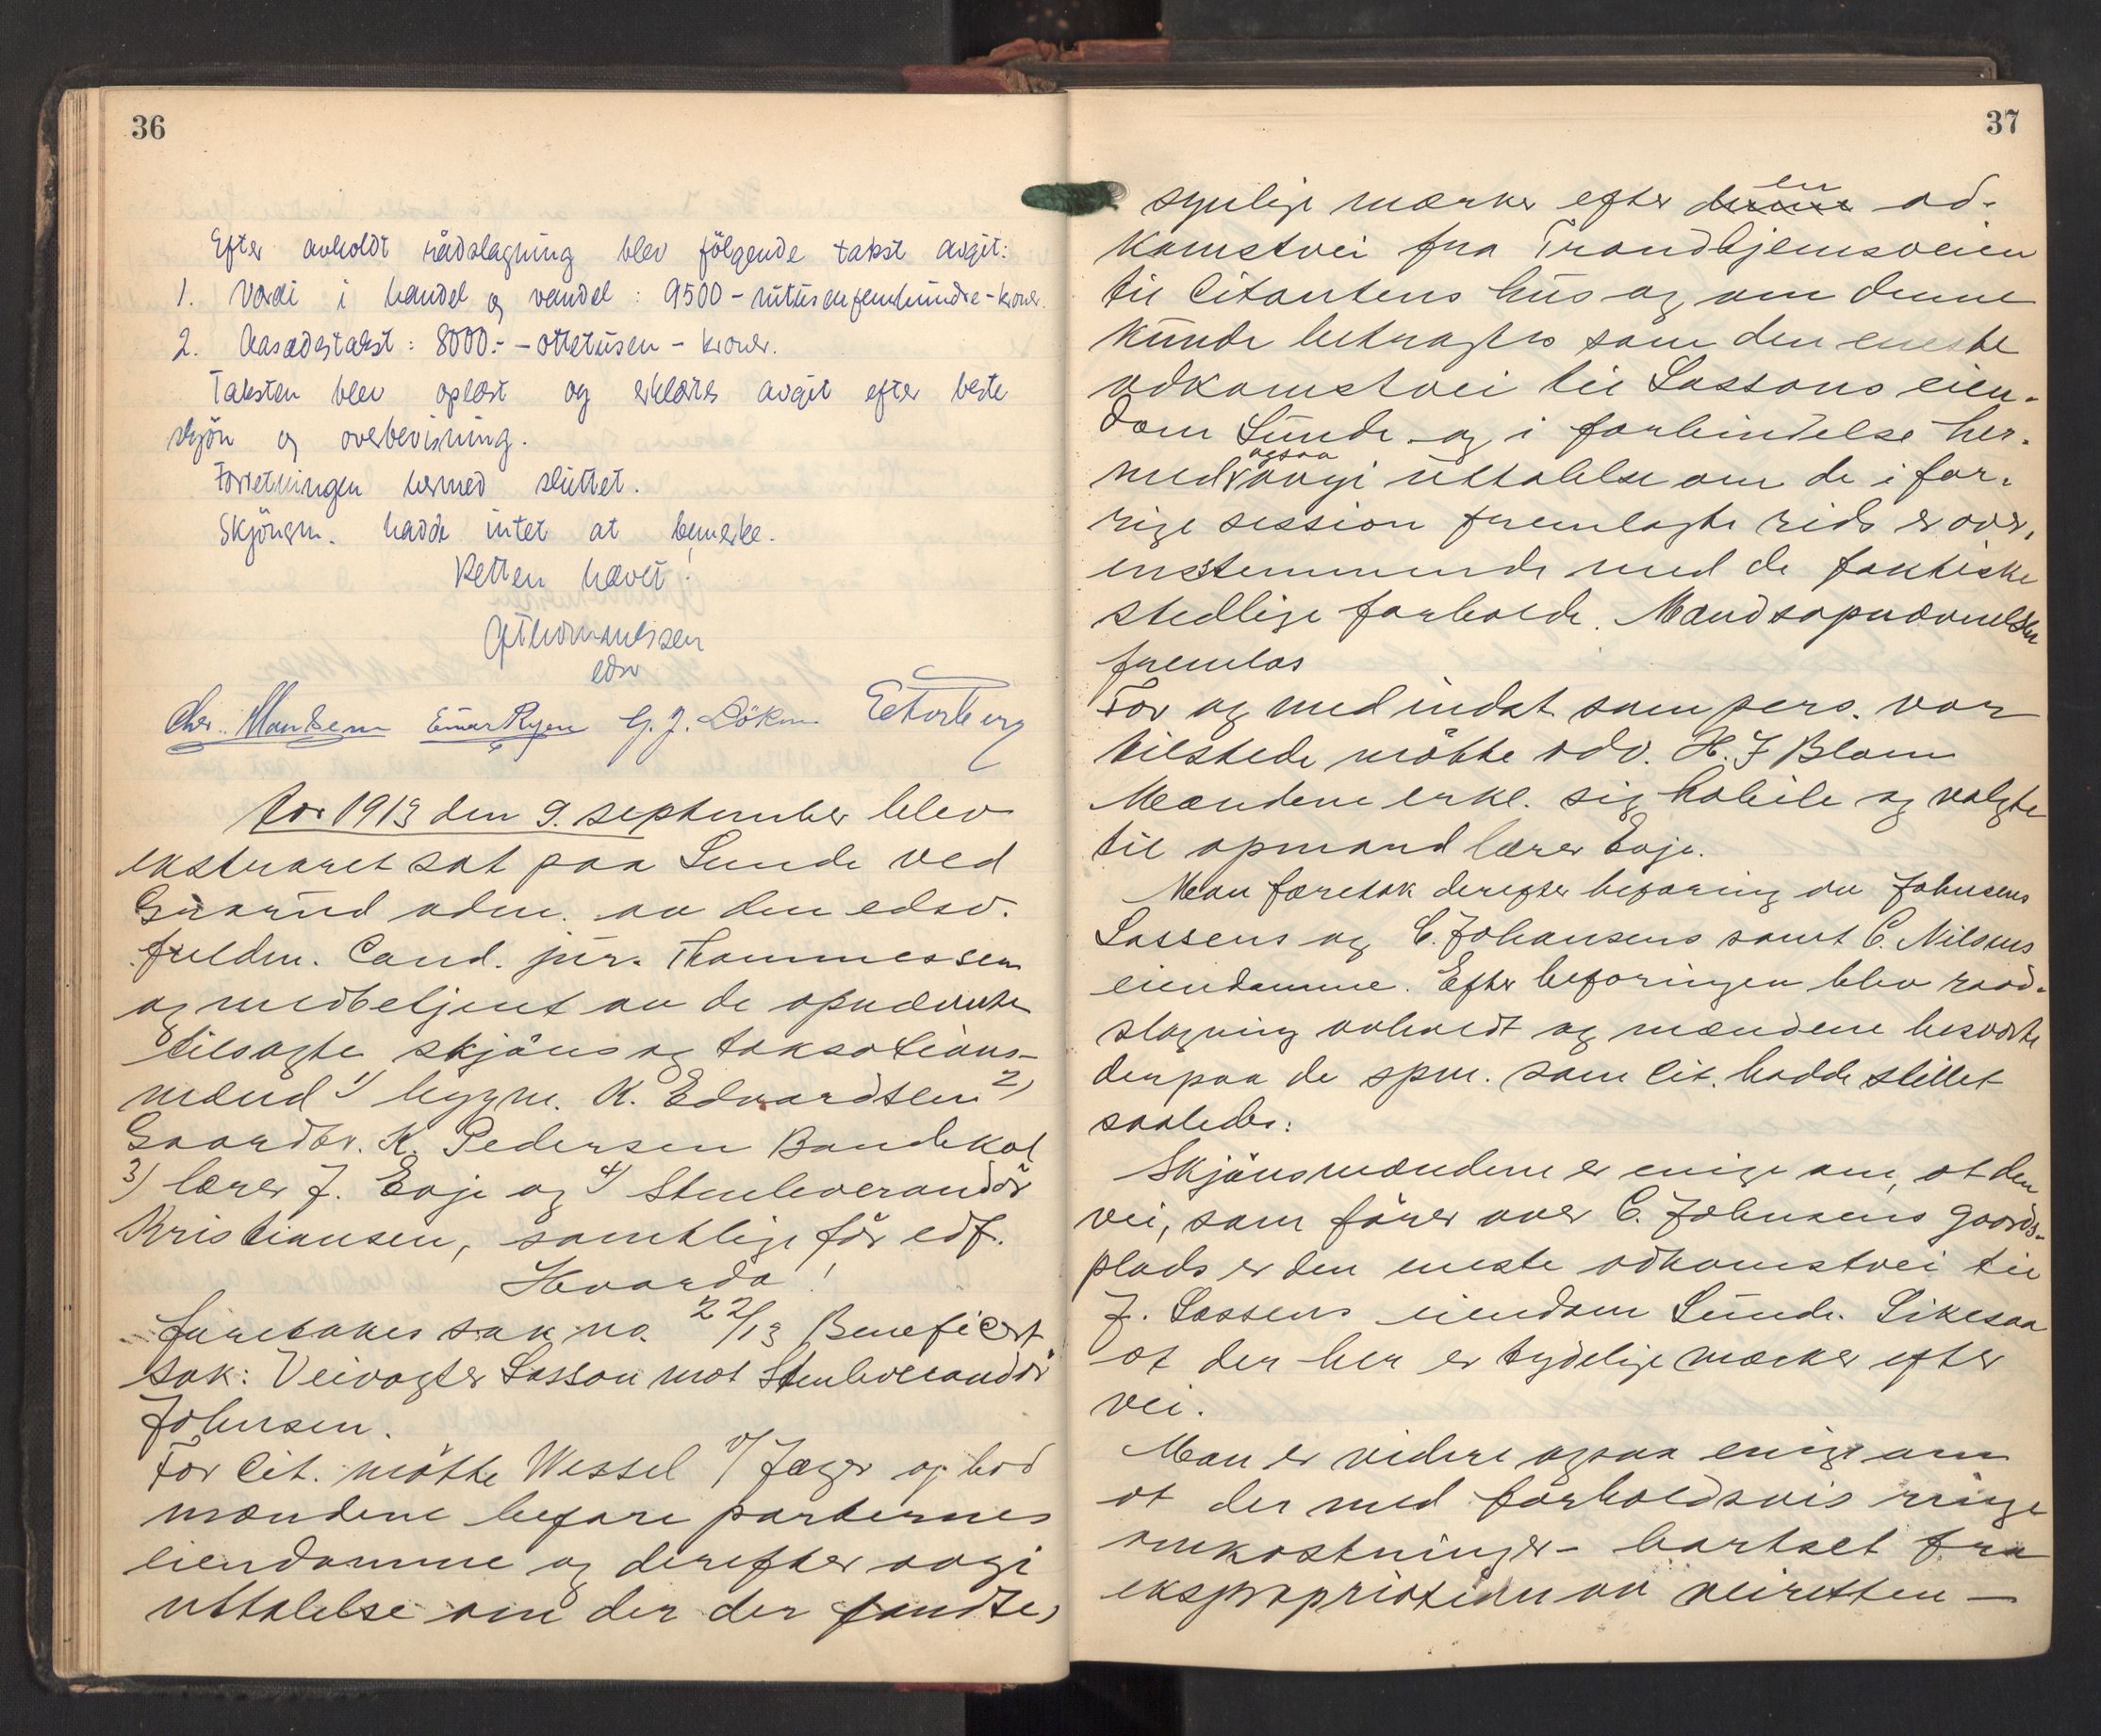 36
Efter avholdt rådslagning blev følgende takst avgit:
1. Værdi i handel og vandel: 9500 - nitusenfemhundre - kroner.
2. Aasædestakst: 8000.- - ottetusen - kroner.
Taksten blev oplæst og erklæres avgit efter beste
skjøn og overbevisning.
Forretningen hermed sluttet.
Skjønsm. hadde intet at bemerke.
Retten hævet!
Thommessen
edsv
Chr. Einar Ryen G. J. Løken
Aar 1913 den 9. september blev
ekstraret sat paa Sunde ved
adm. av den edsv.
fuldm. Cand. jur. Thommessen
og medbetjent av de opnævnte
tilsagte skjøns og taksations-
mænd 1) bygm. K. Edvardsen 2)
Gaardbr. K. Pedersen Bandekal
3) lærer J. Evje og 4) Stenleverandør
Kristiansen, samtlige før edf.
Hvorda!
foretokes sak no. 22/13 Beneficert
sak: Veivogter Lasson mot Stenleverandør
Johnsen.
For Cit. møtte Wessel v/ Jæger og bad
mændene befare parternes
eiendomme og derefter avgi
uttalelse om der der fandtes
37
synlige mærker efter denne en ad-
komstvei fra Trondhjemsveien
til Citantens hus og om denne
kunde betragtes som den eneste
adkomstvei til Lassons eien-
dom Sunde og i forbindelse her-
med ogsaa avgi uttalelse om de i for-
rige session fremlagte rids er over-
ensstemmende med de faktiske
stedlige forholde. Mandsopnævnelsen
fremlas
For og med indst. som pers. var
tilstede møtte adv. H. J Blom
Mændene erkl. sig habile og valgte
til opmand lærer Evje.
Man foretok derefter befaring av Johnsens
Lassens og C. Johansens samt C. Nilsens
eiendomme. Efter befaringen blev raad-
slagning avholdt og mændene besvarte
derpaa de spm. som Cit. hadde stillet
saaledes:
Skjønsmændene er enige om, at den
vei, som fører over C. Johnsens gaards-
plads er den eneste adkomstvei til
J. Lassens eiendom Sunde. Likesaa
at der her er tydelige mærker efter
vei.
Man er videre ogsaa enige om
at der med forholdsvis ringe
omkostninger - bortset fra
ekspropriation av veiretten -